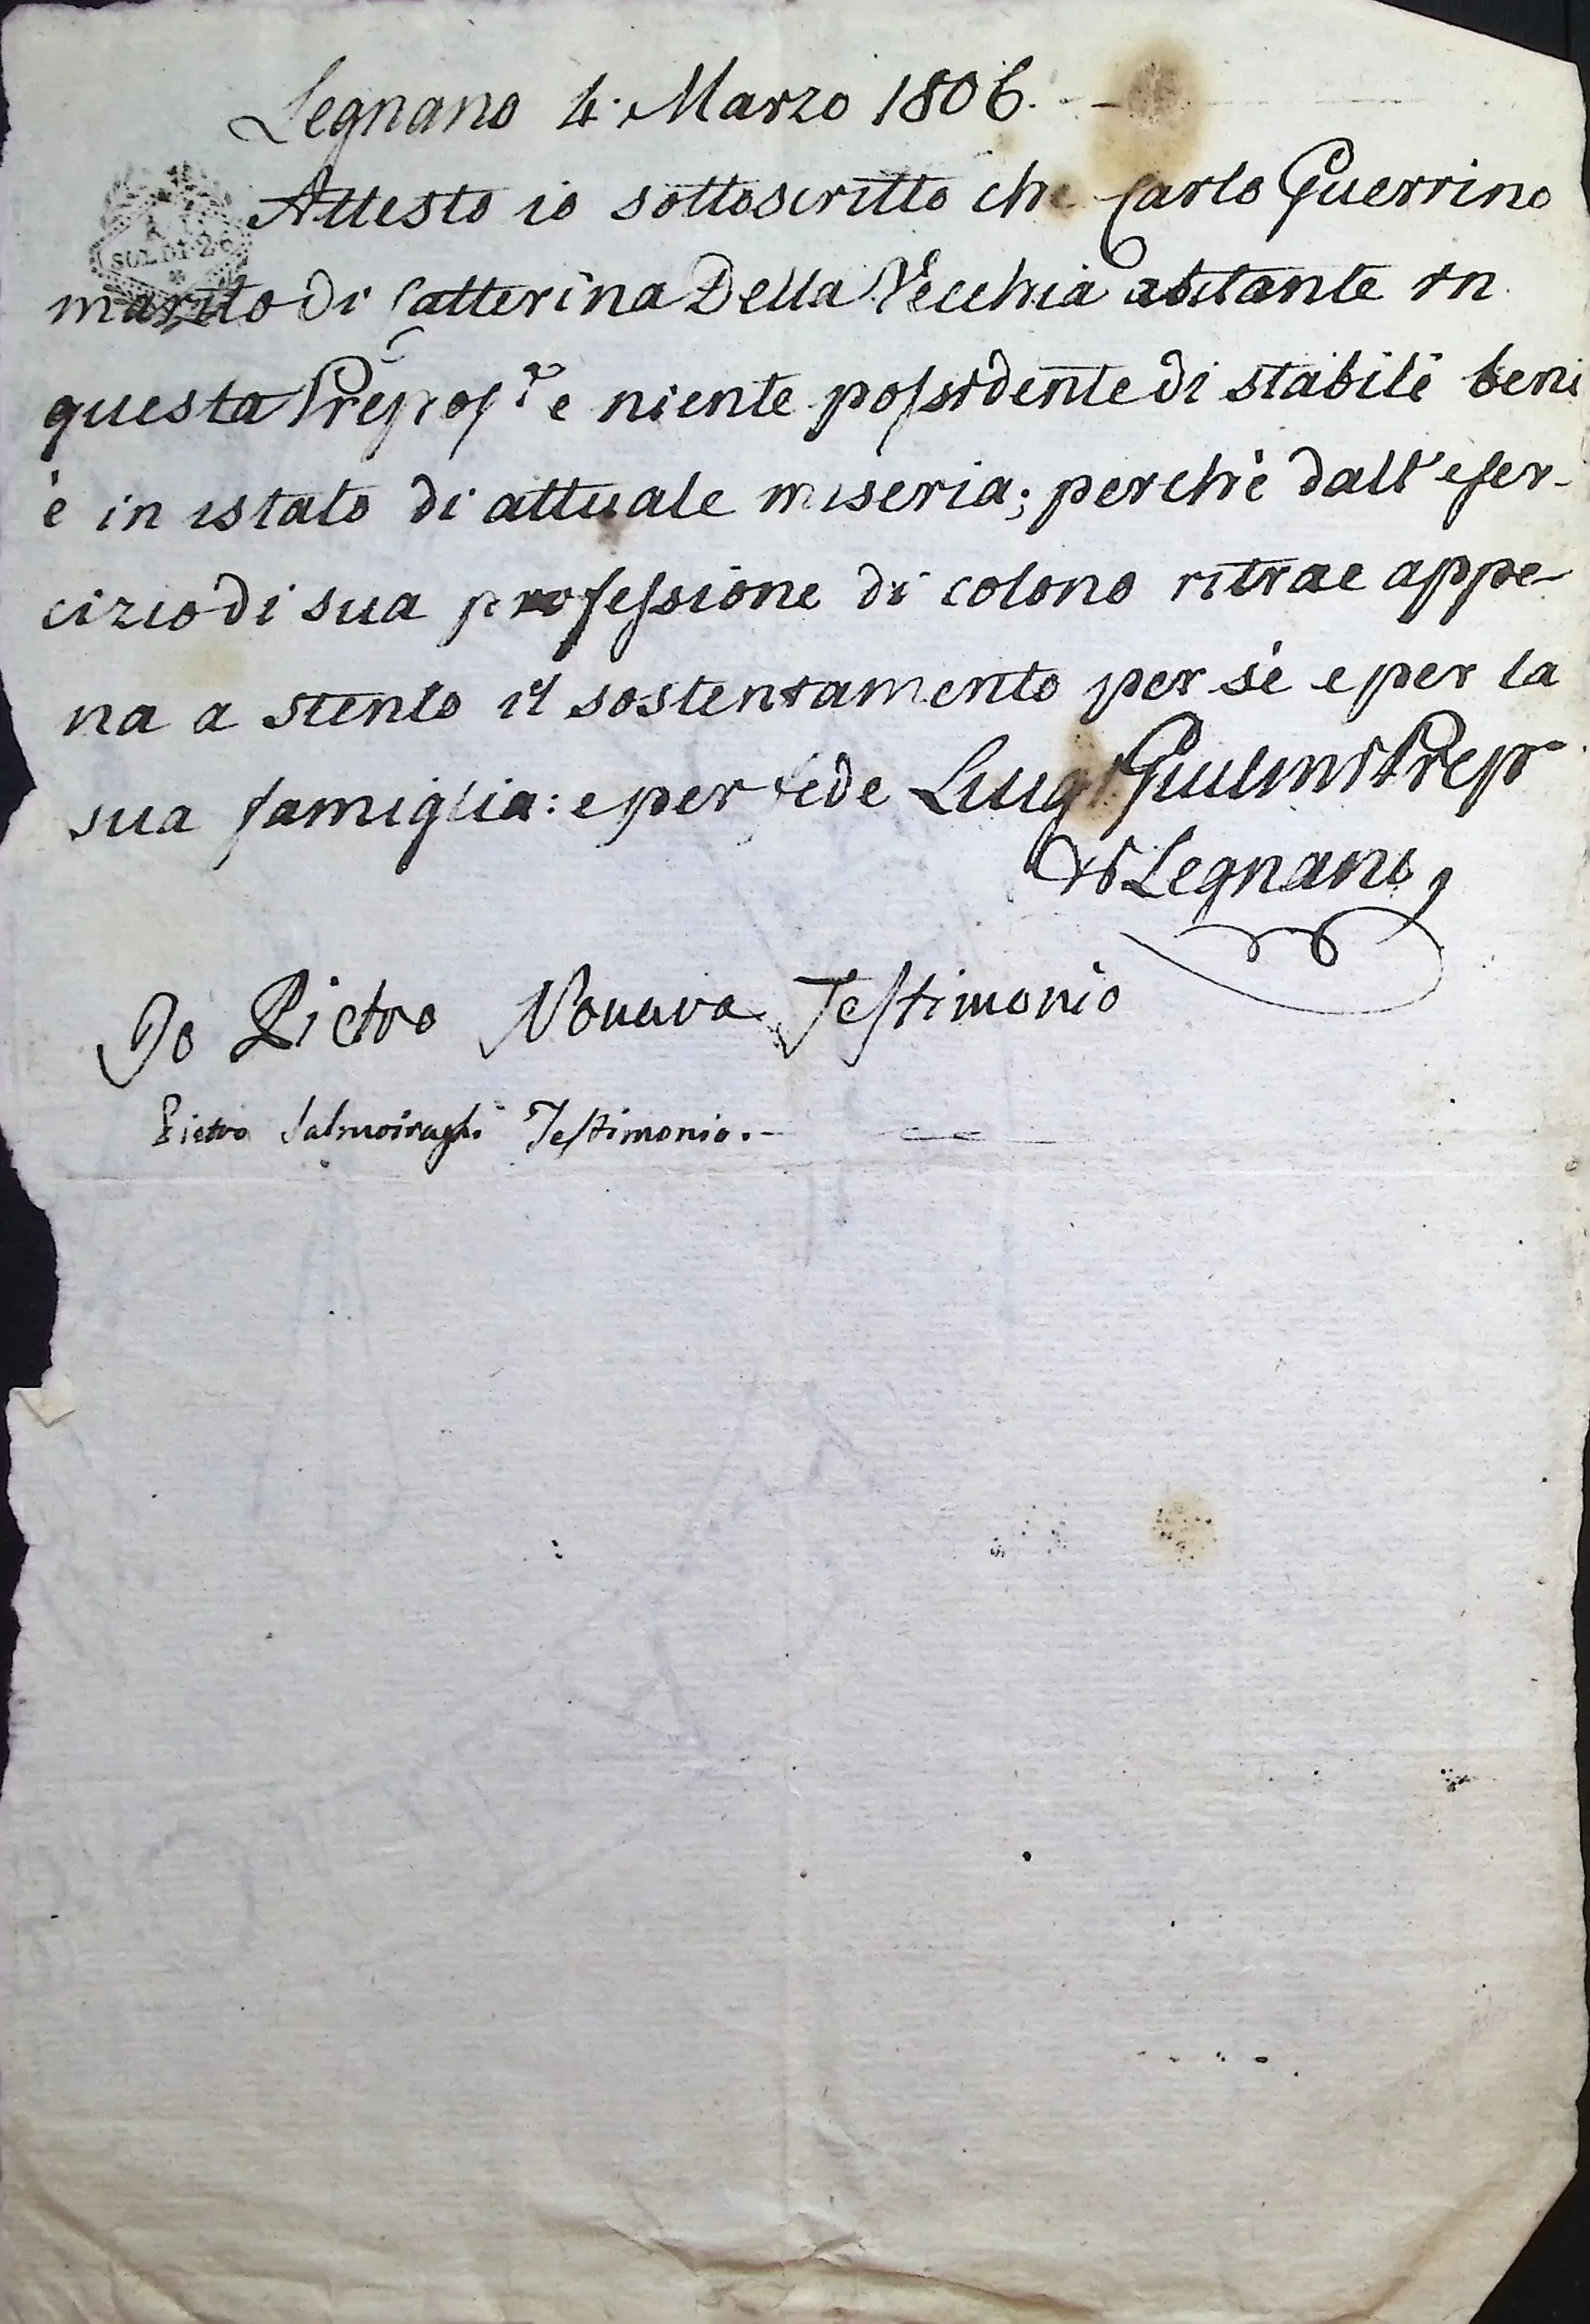 Legnano 4. Marzo 1806.
Attesto io sottoscritto che Carlo Guerrino
SOLDI 2
marito di Catterina Della Vecchia abitante in
questa Prepos.ra e niente possidente di stabili beni
è in istato di attuale miseria; perchè dall'eser-
cizio di sua professione di colono ritrae appe-
na a stento il sostentamento per sè e per la
sua famiglia: e per fede Luigi Prep.
di Legnano,
Io Pietro Testimonio
Pietro Salmoiraghi Testimonio.